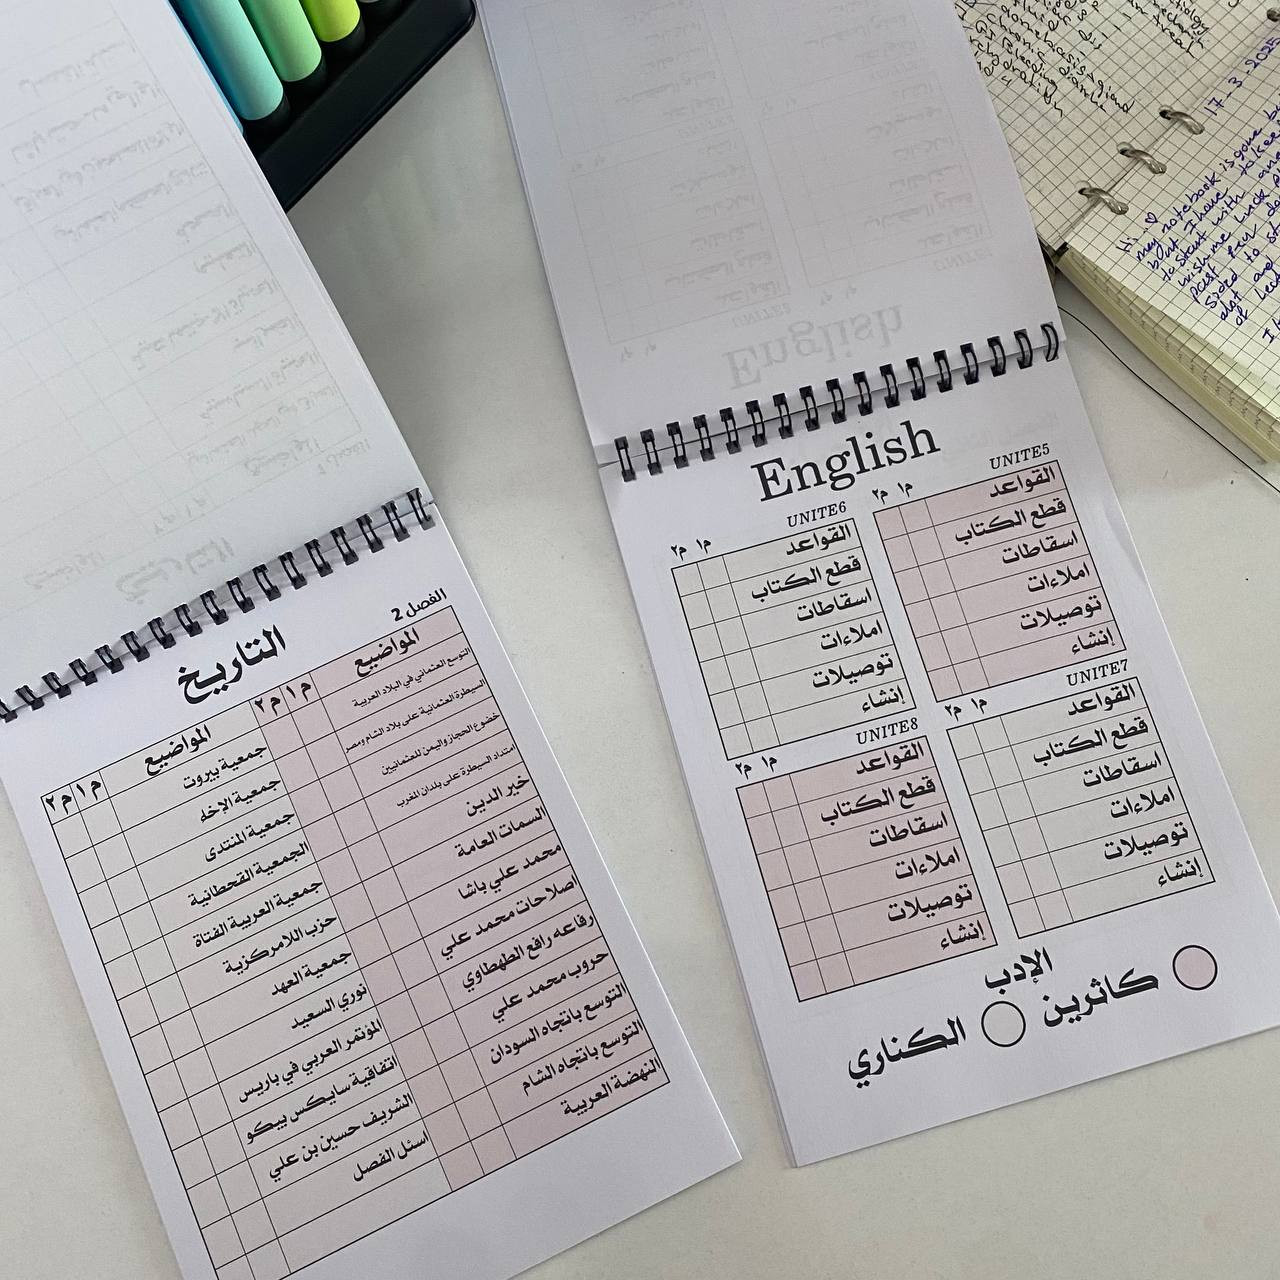 التاريخ
الفصل 2
المواضيع
م ١ م ٢
التوسع العثماني في البلاد العربية
السيطرة العثمانية على بلاد الشام ومصر
خضوع الحجاز واليمن للعثمانيين
امتداد السيطرة على بلدان المغرب
خير الدين
السمات العامة
محمد علي باشا
اصلاحات محمد علي
رفاعه رافع الطهطاوي
حروب محمد علي
التوسع باتجاه السودان
التوسع باتجاه الشام
النهضة العربية
المواضيع
م ١ م ٢
جمعية بيروت
جمعية الإخاء
جمعية المنتدى
الجمعية القحطانية
جمعية العربية الفتاة
حزب اللامركزية
جمعية العهد
نوري السعيد
المؤتمر العربي في باريس
اتفاقية سايكس بيكو
الشريف حسين بن علي
اسئل الفصل
English
UNITE5
م١ م٢
القواعد
قطع الكتاب
اسقاطات
املاءات
توصيلات
إنشاء
UNITE6
م١ م٢
القواعد
قطع الكتاب
اسقاطات
املاءات
توصيلات
إنشاء
UNITE7
م١ م٢
القواعد
قطع الكتاب
اسقاطات
املاءات
توصيلات
إنشاء
UNITE8
م١ م٢
القواعد
قطع الكتاب
اسقاطات
املاءات
توصيلات
إنشاء
الإدب
كاثرين
الكناري
17-3-2025
Hi..♡
my notebook is gone
but I have to keep
to start with
wish me luck